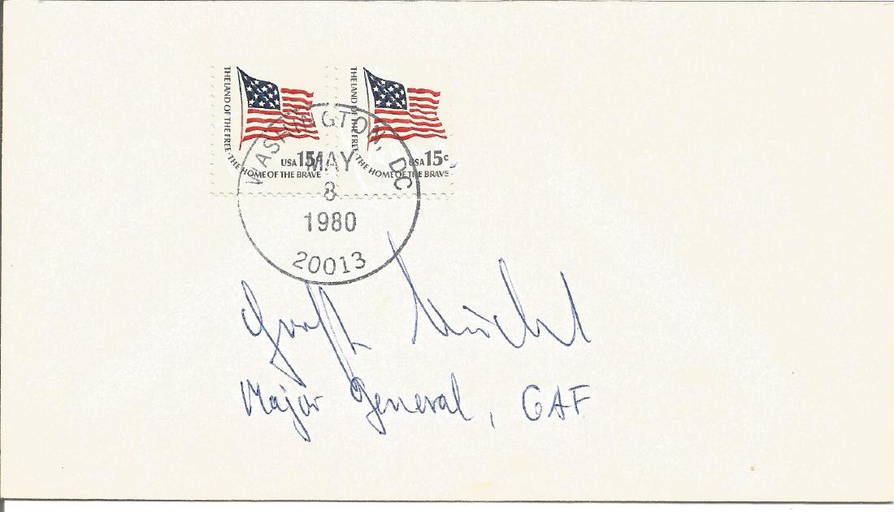 THE LAND OF THE FREE · THE HOME OF THE BRAVE
USA 15c
THE LAND OF THE FREE · THE HOME OF THE BRAVE
USA 15c
WASHINGTON, DC
MAY
8
1980
20013
Major General, GAF